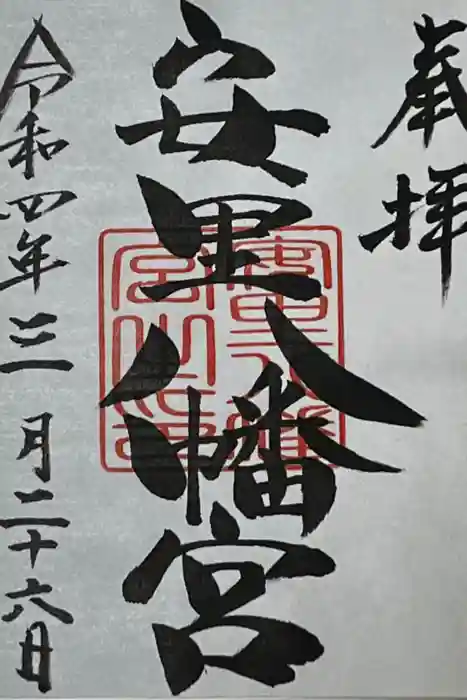 奉拝
安里八幡宮
令和四年三月二十六日